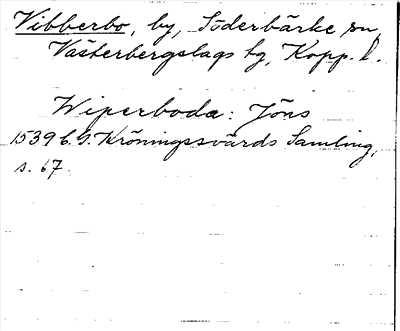 Vibberbo, by, Söderbärke sn,
Västerbergslags tg, Kopp. l.
Wiperboda: Jöns
1539 C. G. Kröningssvärds Samling,
s. 67.